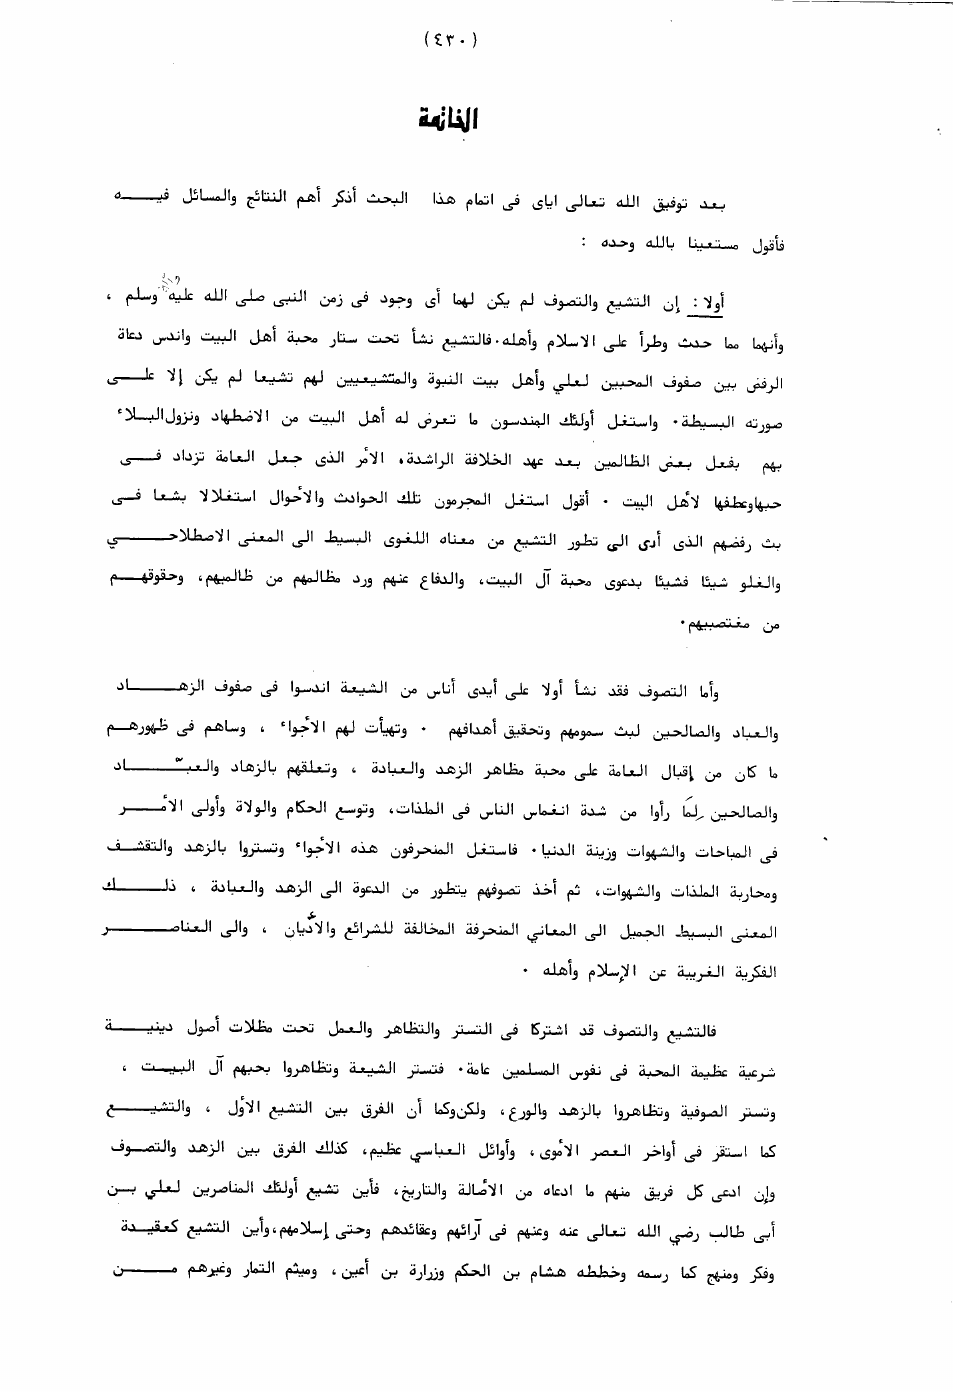 (٤٣٠)
الخاتمة
بعد توفيق الله تعالى اياى فى اتمام هذا البحث أذكر أهم النتائج والمسائل فيـــه
فأقول مستعينا بالله وحده :
أولا : إن التشيع والتصوف لم يكن لهما أى وجود فى زمن النبى صلى الله عليه وسلم ،
وأنهما مما حدث وطرأ على الاسلام وأهله · فالتشيع نشأ تحت ستار محبة أهل البيت واندس دعاة
الرفض بين صفوف المحبين لعلي وأهل بيت النبوة والمتشيعيين لهم تشيعا لم يكن إلا علـــى
صورته البسيطة · واستغل أولئك المندسون ما تعرض له أهل البيت من الاضطهاد ونزول البــلاء
بهم بفعل بعض الظالمين بعد عهد الخلافة الراشدة، الأمر الذى جعل العامة تزداد فـــى
حبها وعطفها لأهل البيت · أقول استغل المجرمون تلك الحوادث والأحوال استغلالا بشعا فــى
بث رفضهم الذى أدى الى تطور التشيع من معناه اللغوى البسيط الى المعنى الاصطلاحـــــي
والغلو شيئا فشيئا بدعوى محبة آل البيت، والدفاع عنهم ورد مظالمهم من ظالميهم، وحقوقهــم
من مغتصبيهم ·
وأما التصوف فقد نشأ أولا على أيدى أناس من الشيعة اندسوا فى صفوف الزهـــــاد
والعباد والصالحين لبث سمومهم وتحقيق أهدافهم · وتهيأت لهم الأجواء ، وساهم فى ظهورهــم
ما كان من إقبال العامة على محبة مظاهر الزهد والعبادة ، وتعلقهم بالزهاد والعبـــــاد
والصالحين لِمَا رأوا من شدة انغماس الناس فى الملذات، وتوسع الحكام والولاة وأولى الأمـــر
فى المباحات والشهوات وزينة الدنيا · فاستغل المنحرفون هذه الأجواء وتستروا بالزهد والتقشــف
ومحاربة الملذات والشهوات، ثم أخذ تصوفهم يتطور من الدعوة الى الزهد والعبادة ، ذلــــك
المعنى البسيط الجميل الى المعاني المنحرفة المخالفة للشرائع والأديان ، والى العناصـــــر
الفكرية الغريبة عن الإسلام وأهله ·
فالتشيع والتصوف قد اشتركا فى التستر والتظاهر والعمل تحت مظلات أصول دينيـــــة
شرعية عظيمة المحبة فى نفوس المسلمين عامة · فتستر الشيعة وتظاهروا بحبهم آل البيــت ،
وتستر الصوفية وتظاهروا بالزهد والورع، ولكن وكما أن الفرق بين التشيع الأول ، والتشيـــع
كما استقر فى أواخر العصر الأموى، وأوائل العباسي عظيم، كذلك الفرق بين الزهد والتصــوف
وإن ادعى كل فريق منهم ما ادعاه من الأصالة والتاريخ، فأين تشيع أولئك المناصرين لعلي بــن
أبى طالب رضي الله تعالى عنه وعنهم فى آرائهم وعقائدهم وحتى إسلامهم، وأين التشيع كعقيـدة
وفكر ومنهج كما رسمه وخططه هشام بن الحكم وزرارة بن أعين، وميثم التمار وغيرهم مـــــن